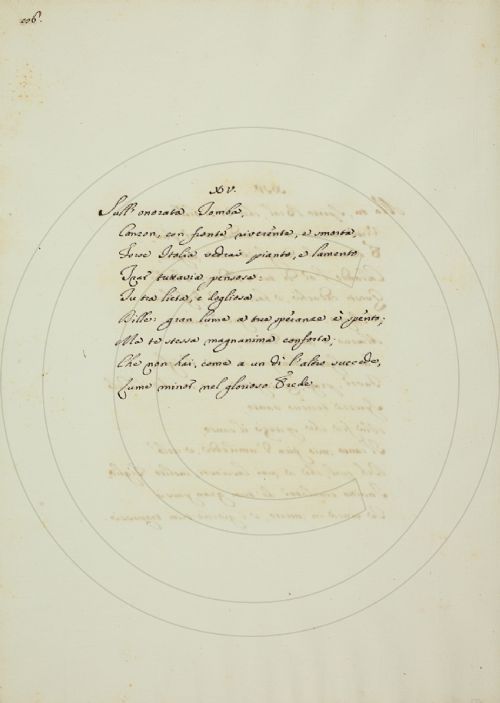 106.
XV.
Sull' onorata Tomba,
Canzon, con fronte riverente, e smorta,
Forse Italia vedrai pianto, e lamento
Trar tuttavia pensosa:
Tu tra lieta, e dogliosa
Dille: gran lume a tue speranze è spento;
Ma te stessa magnanima conforta;
Che non hai, come a un dì l'altro succede,
Lume minor nel glorioso Erede